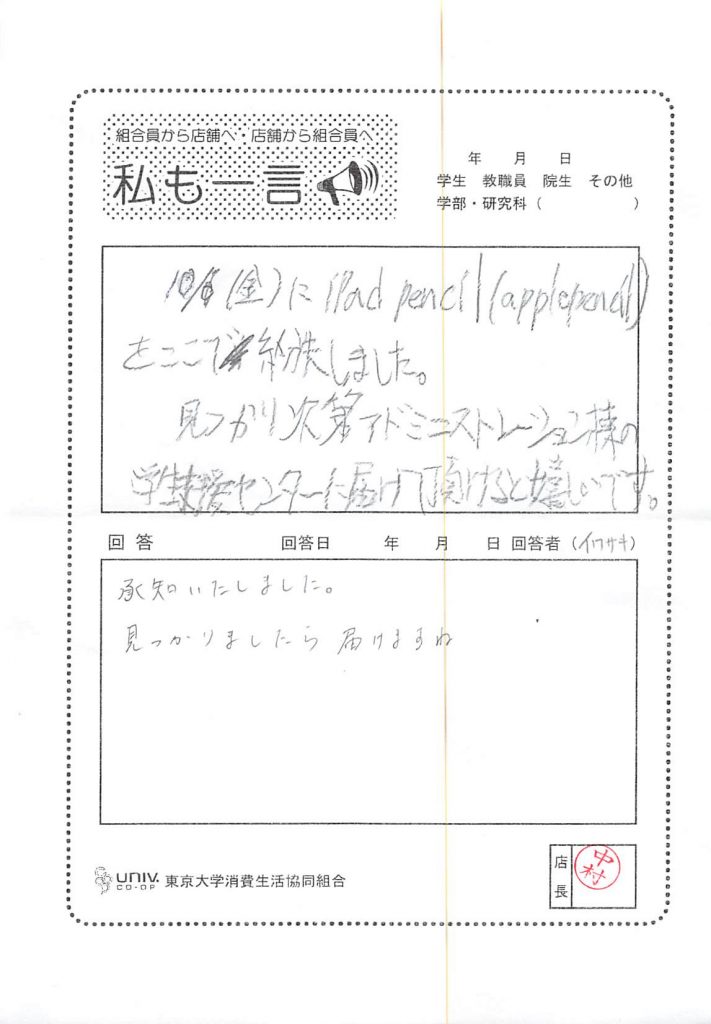 組合員から店舗へ・店舗から組合員へ
私も一言
年 月 日
学生 教職員 院生 その他
学部・研究科( )
(金)に iPad pencil (applepencil)
をここで紛失しました。
見つかり次第アドミニストレーション棟の
学生支援センターに届けて頂けると嬉しいです。
回答 回答日 年 月 日 回答者(イワサキ)
承知いたしました。
見つかりましたら届けますね
UNIV. CO-OP 東京大学消費生活協同組合
店長
中村